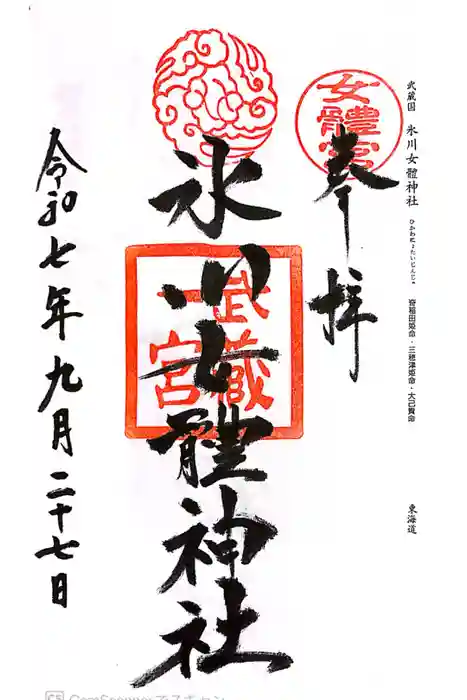 武蔵国 氷川女體神社
ひかわにょたいじんじゃ
奇稲田姫命・三穂津姫命・大己貴命
東海道
女體宮
奉拝
武蔵
一宮
氷川女體神社
令和七年九月二十七日
CS CamScannerでスキャン